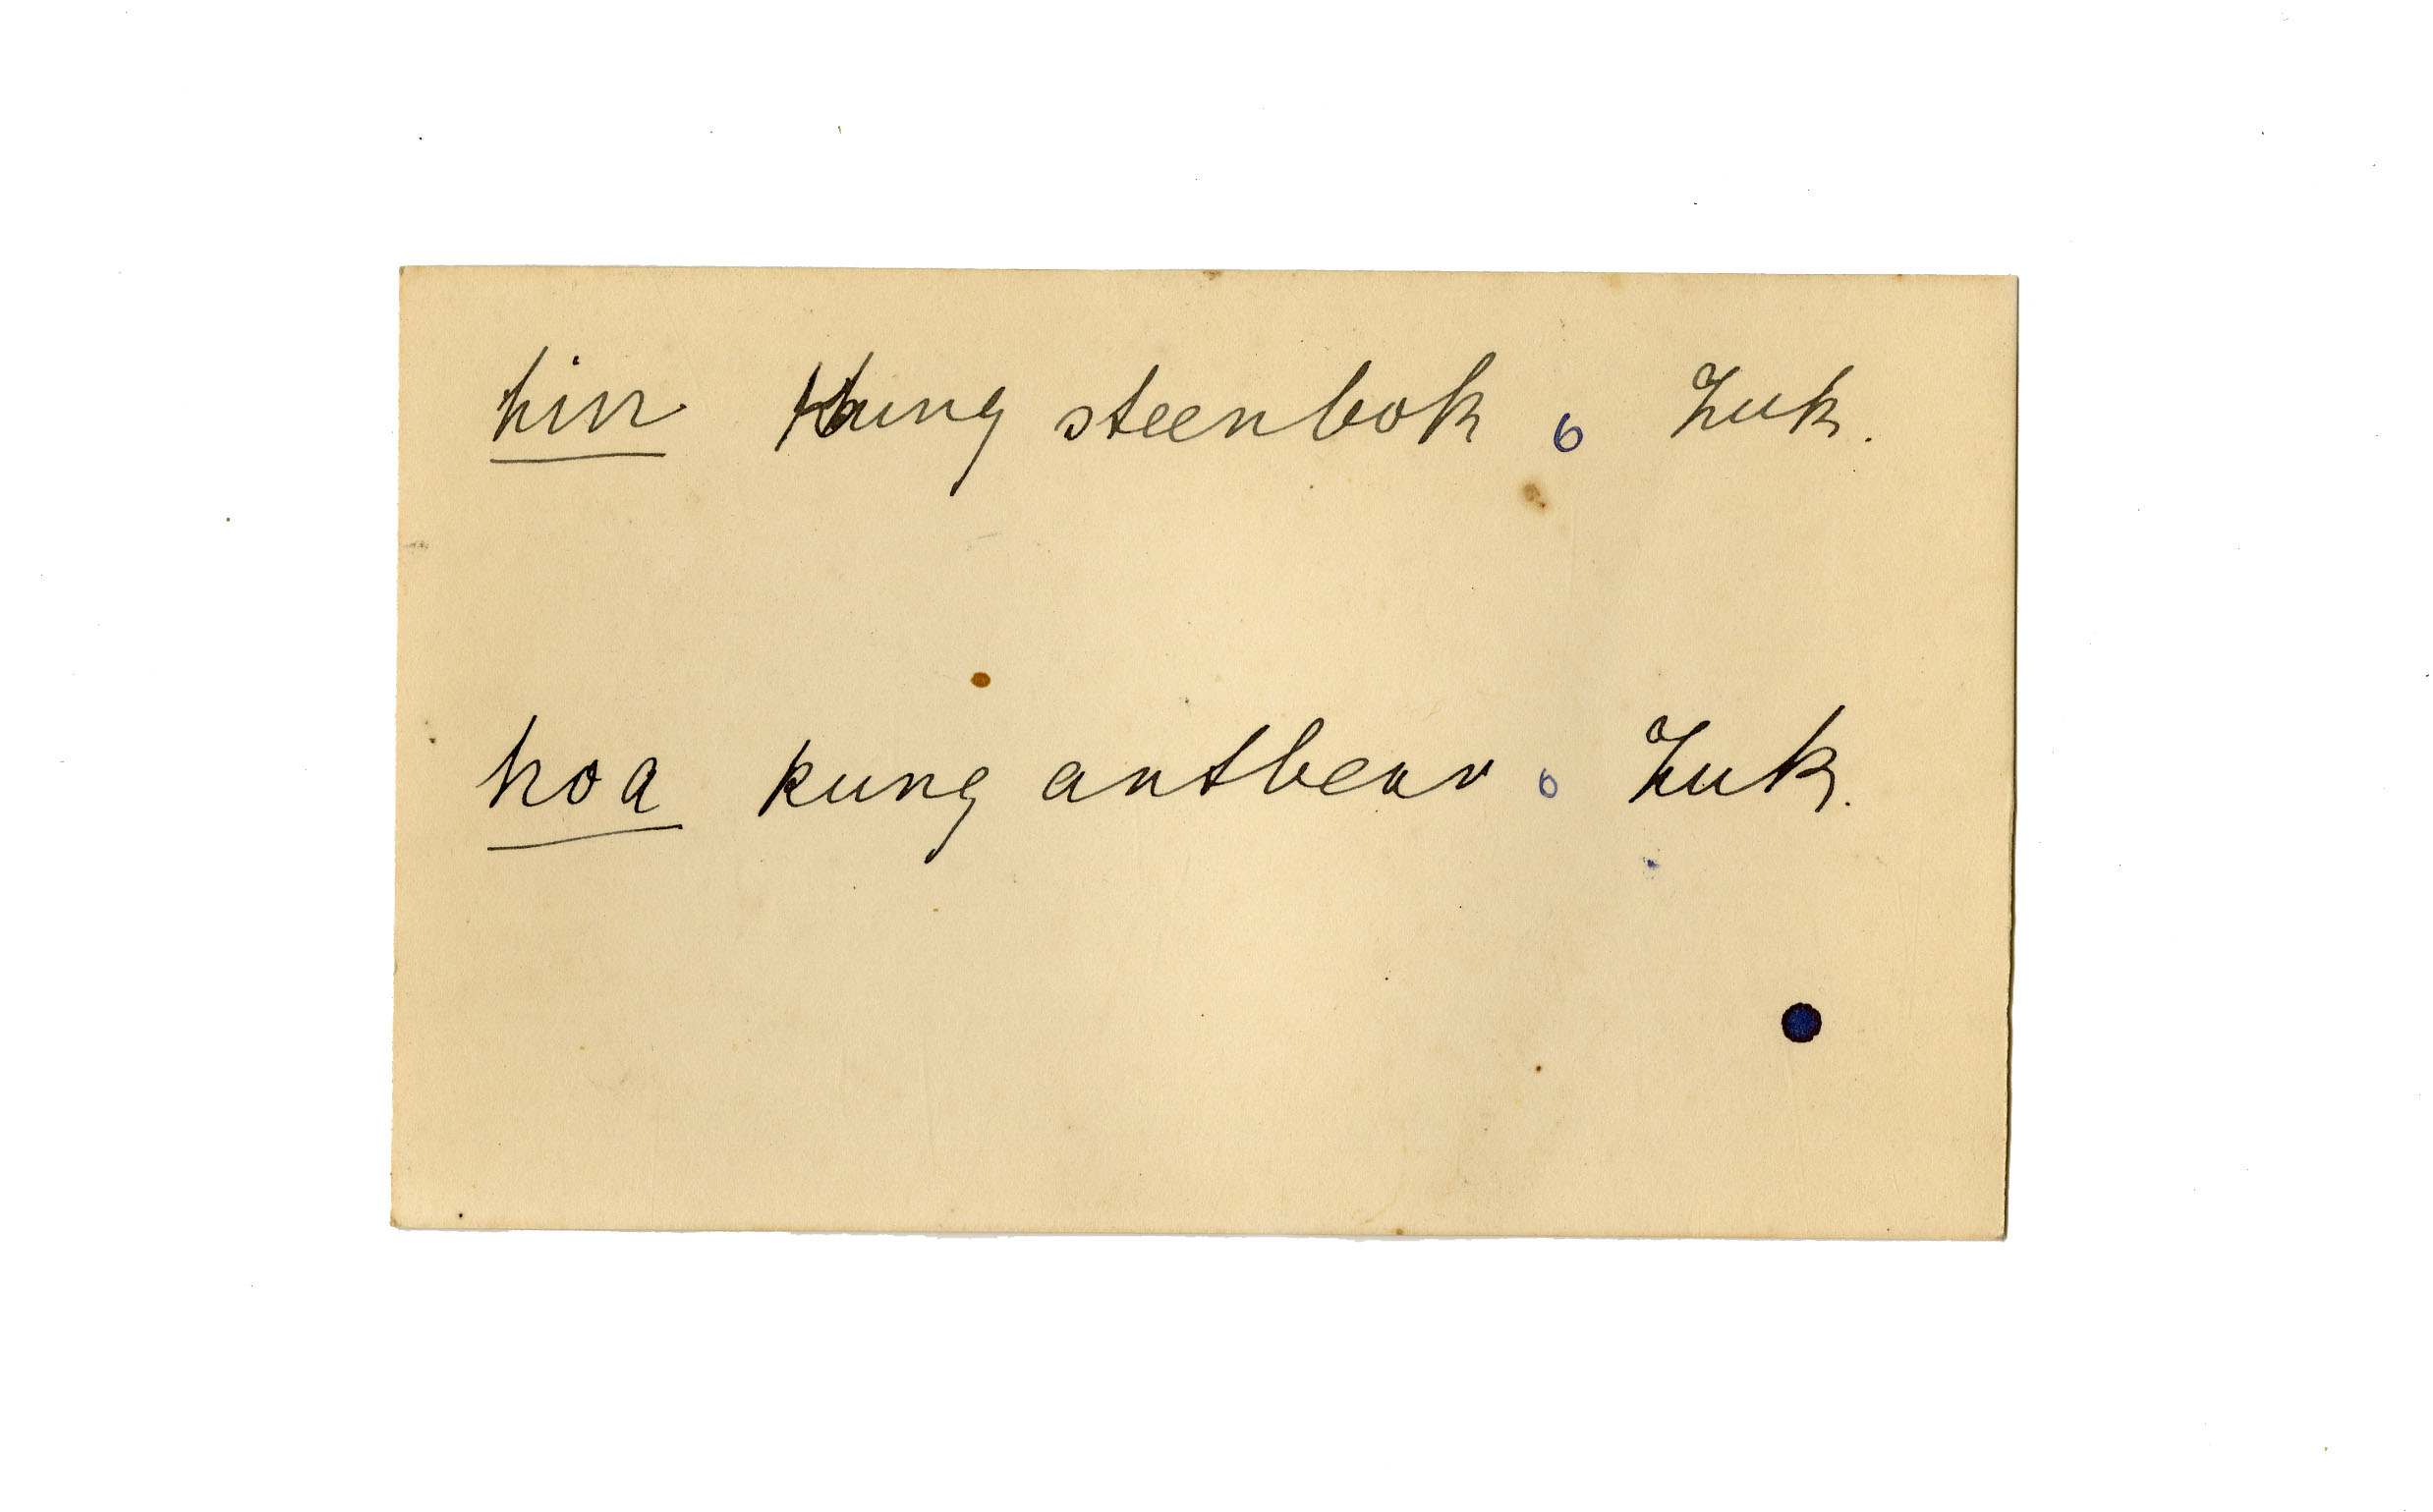 hin Kung steenbok 6 Zuk.
hoa kung antbear 6 Zuk.